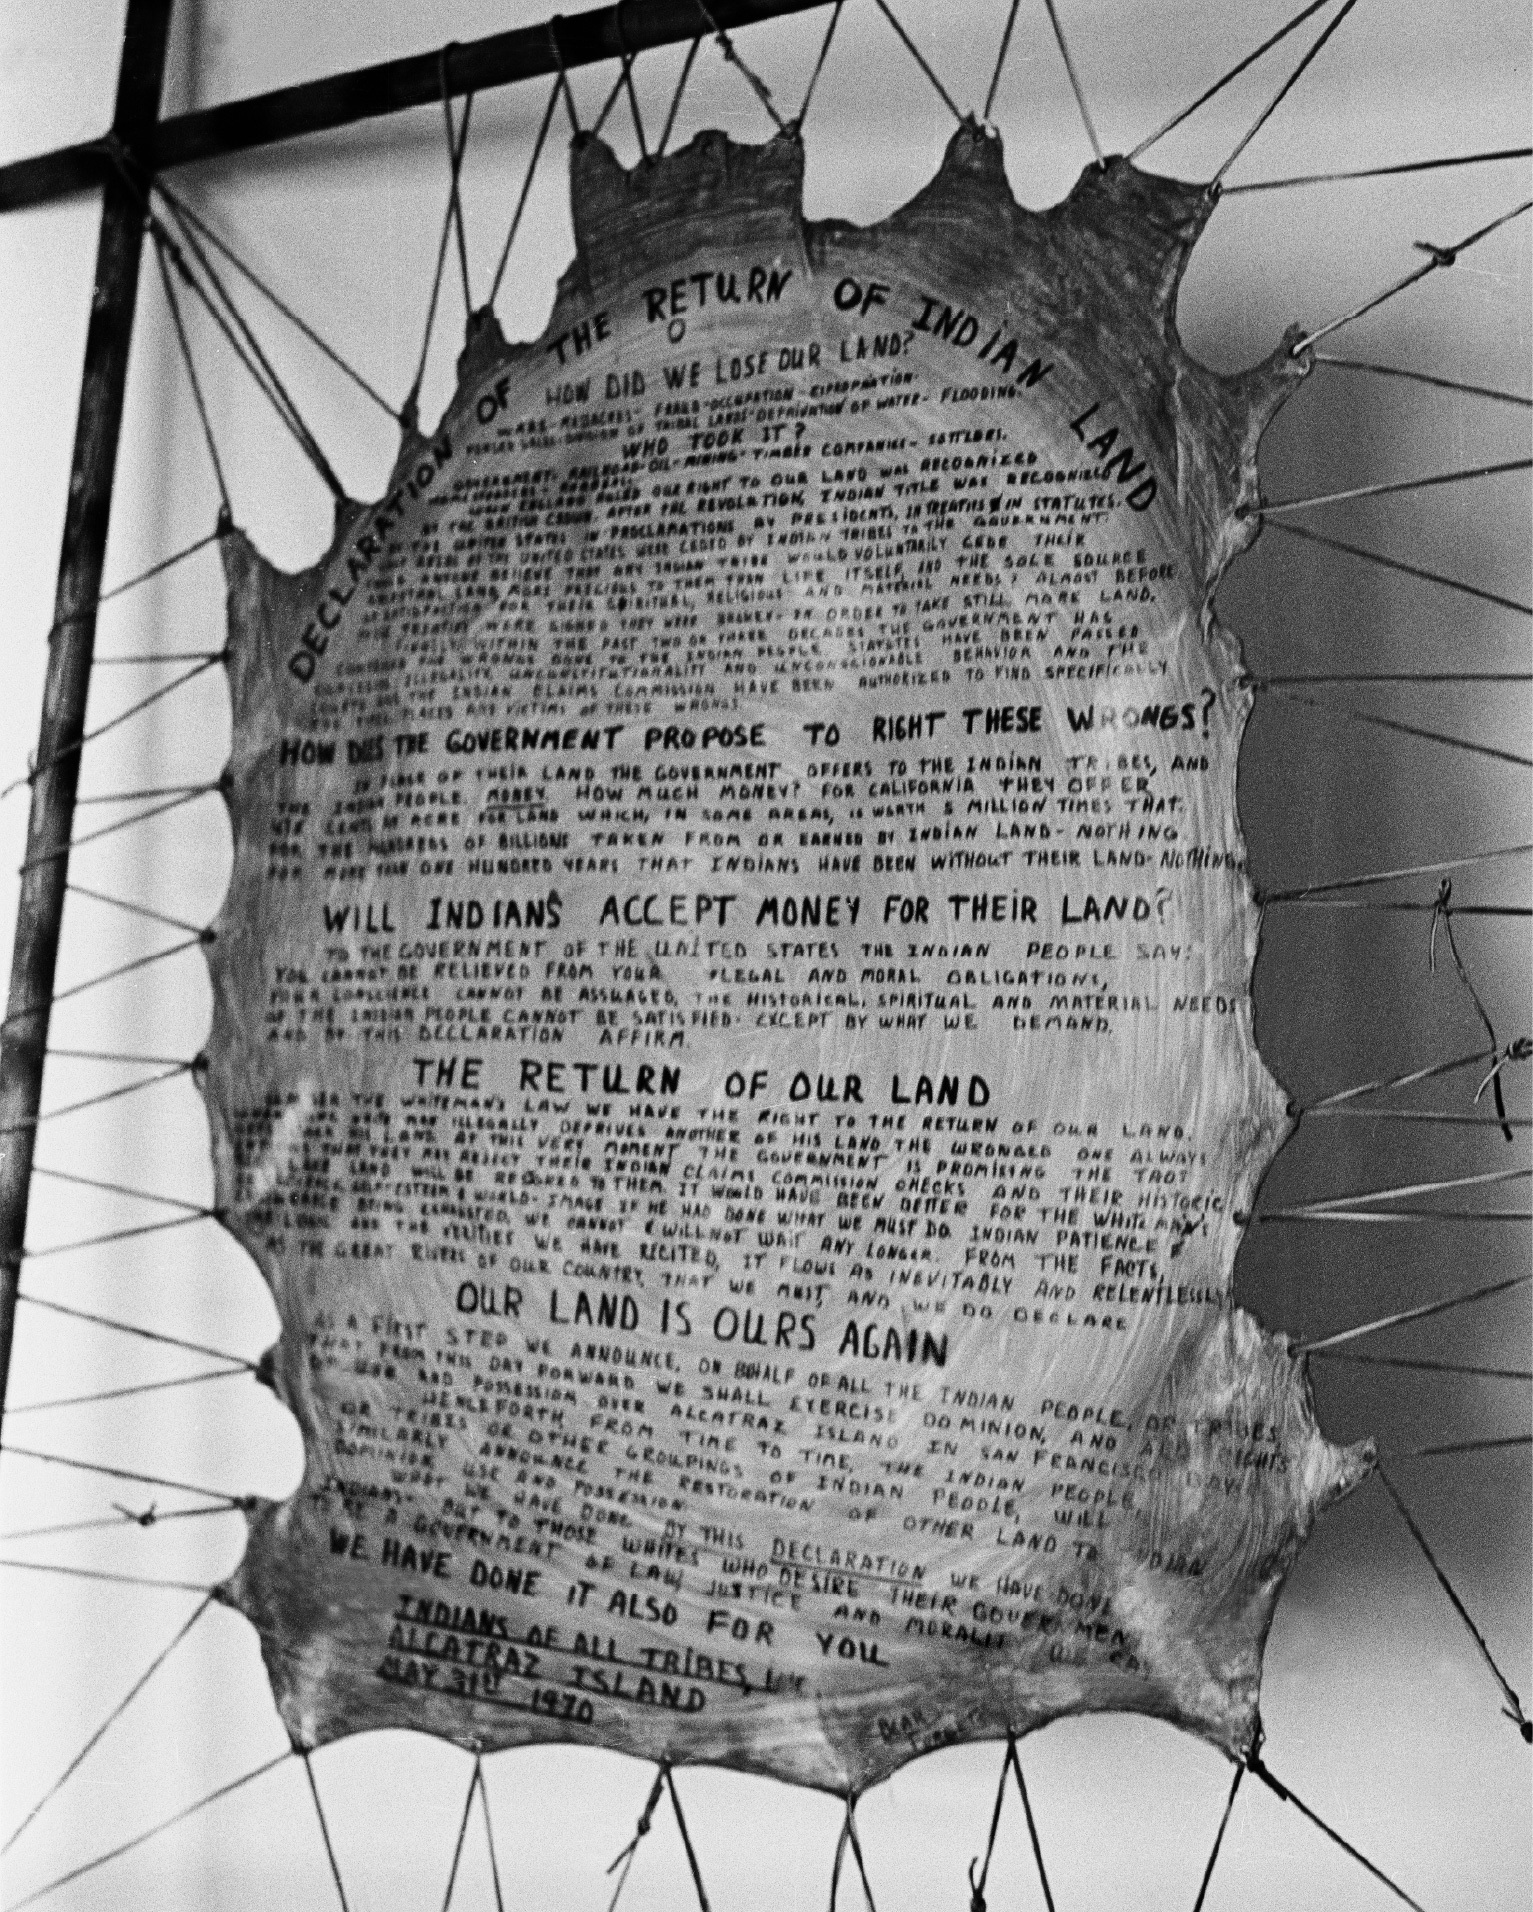 DECLARATION OF THE RETURN OF INDIAN LAND
HOW DID WE LOSE OUR LAND?
WARS - MASSACRES - FRAUD - OCCUPATION - EXPROPRIATION.
FORCED SALES - DIVISION OF TRIBAL LANDS - DEPRIVATION OF WATER - FLOODING.
WHO TOOK IT?
GOVERNMENT. RAILROAD - OIL - MINING - TIMBER COMPANIES - SETTLERS.
WHEN ENGLAND RULED OUR RIGHT TO OUR LAND WAS RECOGNIZED
BY THE BRITISH CROWN. AFTER THE REVOLUTION, INDIAN TITLE WAS RECOGNIZED
BY THE UNITED STATES IN PROCLAMATIONS BY PRESIDENTS, IN TREATIES & IN STATUTES.
OF THE UNITED STATES WERE CEDED BY INDIAN TRIBES TO THE GOVERNMENT.
ANYONE BELIEVE THAT ANY INDIAN TRIBE WOULD VOLUNTARILY CEDE THEIR
ANCESTRAL LAND, MORE PRECIOUS TO THEM THAN LIFE ITSELF, AND THE SOLE SOURCE
OF SATISFACTION FOR THEIR SPIRITUAL, RELIGIOUS AND MATERIAL NEEDS? ALMOST BEFORE
THE TREATIES WERE SIGNED THEY WERE BROKEN - IN ORDER TO TAKE STILL MORE LAND.
FINALLY, WITHIN THE PAST TWO OR THREE DECADES THE GOVERNMENT HAS
THE WRONGS DONE TO THE INDIAN PEOPLE. STATUTES HAVE BEEN PASSED
ILLEGALITY, UNCONSTITUTIONALITY AND UNCONSCIONABLE BEHAVIOR AND THE
COURTS AND THE INDIAN CLAIMS COMMISSION HAVE BEEN AUTHORIZED TO FIND SPECIFICALLY
PLACES AND VICTIMS OF THESE WRONGS.
HOW DOES THE GOVERNMENT PROPOSE TO RIGHT THESE WRONGS?
IN PLACE OF THEIR LAND THE GOVERNMENT OFFERS TO THE INDIAN TRIBES, AND
THE INDIAN PEOPLE. MONEY. HOW MUCH MONEY? FOR CALIFORNIA THEY OFFER
CENTS AN ACRE FOR LAND WHICH, IN SOME AREAS, IS WORTH MILLION TIMES THAT.
FOR THE HUNDREDS OF BILLIONS TAKEN FROM OR EARNED BY INDIAN LAND - NOTHING.
FOR MORE THAN ONE HUNDRED YEARS THAT INDIANS HAVE BEEN WITHOUT THEIR LAND - NOTHING.
WILL INDIANS ACCEPT MONEY FOR THEIR LAND?
TO THE GOVERNMENT OF THE UNITED STATES THE INDIAN PEOPLE SAY:
YOU CANNOT BE RELIEVED FROM YOUR LEGAL AND MORAL OBLIGATIONS,
YOUR CONSCIENCE CANNOT BE ASSUAGED, THE HISTORICAL, SPIRITUAL AND MATERIAL NEEDS
OF THE INDIAN PEOPLE CANNOT BE SATISFIED - EXCEPT BY WHAT WE DEMAND,
AND BY THIS DECLARATION AFFIRM.
THE RETURN OF OUR LAND
UNDER THE WHITEMAN'S LAW WE HAVE THE RIGHT TO THE RETURN OF OUR LAND.
WHEN ONE WHITE MAN ILLEGALLY DEPRIVES ANOTHER OF HIS LAND THE WRONGED ONE ALWAYS
HIS LAND. AT THIS VERY MOMENT THE GOVERNMENT IS PROMISING THE TAOS
THAT THEY MAY REJECT THEIR INDIAN CLAIMS COMMISSION CHECKS AND THEIR HISTORIC
LAKE LAND WILL BE RESTORED TO THEM. IT WOULD HAVE BEEN BETTER FOR THE WHITE MAN'S
SELF-ESTEEM & WORLD-IMAGE IF HE HAD DONE WHAT WE MUST DO. INDIAN PATIENCE IS
BEING EXHAUSTED. WE CANNOT & WILL NOT WAIT ANY LONGER. FROM THE FACTS,
THE LOGIC AND THE VERITIES WE HAVE RECITED, IT FLOWS AS INEVITABLY AND RELENTLESSLY
AS THE GREAT RIVERS OF OUR COUNTRY, THAT WE MUST, AND WE DO DECLARE
OUR LAND IS OURS AGAIN
AS A FIRST STEP WE ANNOUNCE, ON BEHALF OF ALL THE INDIAN PEOPLE, OR TRIBES
THAT FROM THIS DAY FORWARD WE SHALL EXERCISE DOMINION, AND ALL RIGHTS
OF USE AND POSSESSION OVER ALCATRAZ ISLAND IN SAN FRANCISCO BAY.
HENCEFORTH FROM TIME TO TIME, THE INDIAN PEOPLE,
OR TRIBES OR OTHER GROUPINGS OF INDIAN PEOPLE, WILL
SIMILARLY ANNOUNCE THE RESTORATION OF OTHER LAND TO INDIAN
DOMINION USE AND POSSESSION.
WHAT WE HAVE DONE BY THIS DECLARATION WE HAVE DONE
INDIANS. BUT TO THOSE WHITES WHO DESIRE THEIR GOVERNMENT
TO BE A GOVERNMENT OF LAW, JUSTICE AND MORALITY WE SAY
WE HAVE DONE IT ALSO FOR YOU
INDIANS OF ALL TRIBES,
ALCATRAZ ISLAND
MAY 31ST 1970